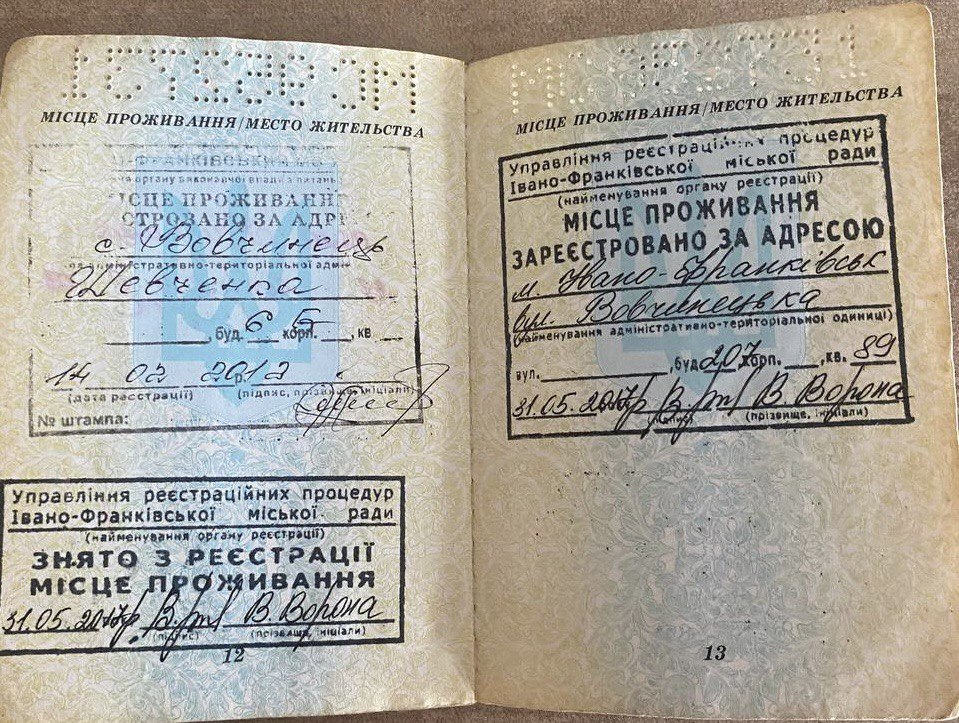 МІСЦЕ ПРОЖИВАННЯ/МЕСТО ЖИТЕЛЬСТВА
МІСЦЕ ПРОЖИВАНН
СТРОВАНО ЗА АДРЕ
с. Вовчинець
Шевченка
, буд. 6 Б корп. , кв
14 02 2012 р.
(дата реєстрації) (підпис, прізвище, ініціали)
№ штампа:
Управління реєстраційних процедур
Івано-Франківської міської ради
(найменування органу реєстрації)
ЗНЯТО З РЕЄСТРАЦІЇ
МІСЦЕ ПРОЖИВАННЯ
31.05.2017р В. Ворона
(підпис) (прізвище, ініціали)
12
МІСЦЕ ПРОЖИВАННЯ/МЕСТО ЖИТЕЛЬСТВА
Управління реєстраційних процедур
Івано-Франківської міської ради
(найменування органу реєстрації)
МІСЦЕ ПРОЖИВАННЯ
ЗАРЕЄСТРОВАНО ЗА АДРЕСОЮ
м. Івано-Франківськ
вул. Вовчинецька
(найменування адміністративно-територіальної одиниці)
вул. , буд 207 корп. , кв. 89
31.05.2017р В. Ворона
(підпис) (прізвище, ініціали)
13